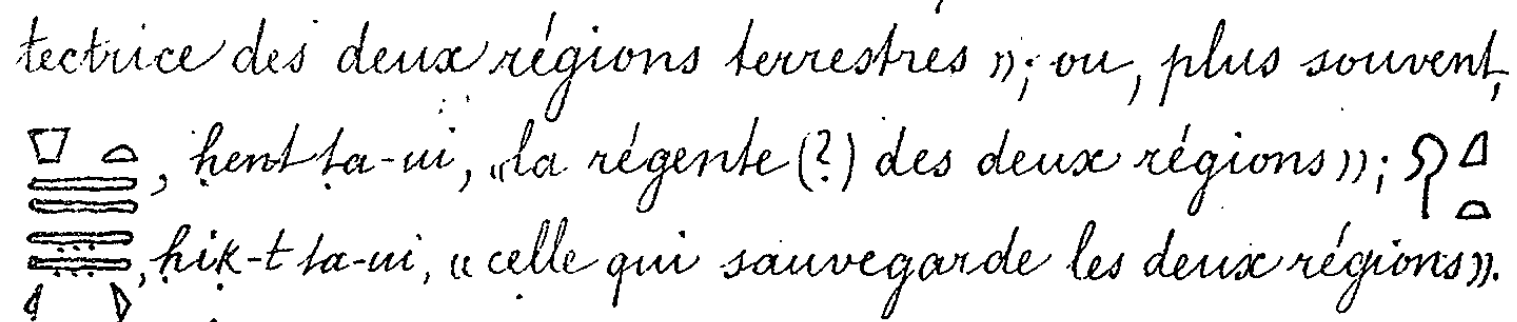 tectrice des deux régions terrestres »; ou, plus souvent,
𓎺𓏏𓇾𓇾, ḥent ta-ui, «la régente (?) des deux régions»; 𓋾𓈎𓏏
𓇿𓇿, ḥiḳ-t ta-ui, «celle qui sauvegarde les deux régions».